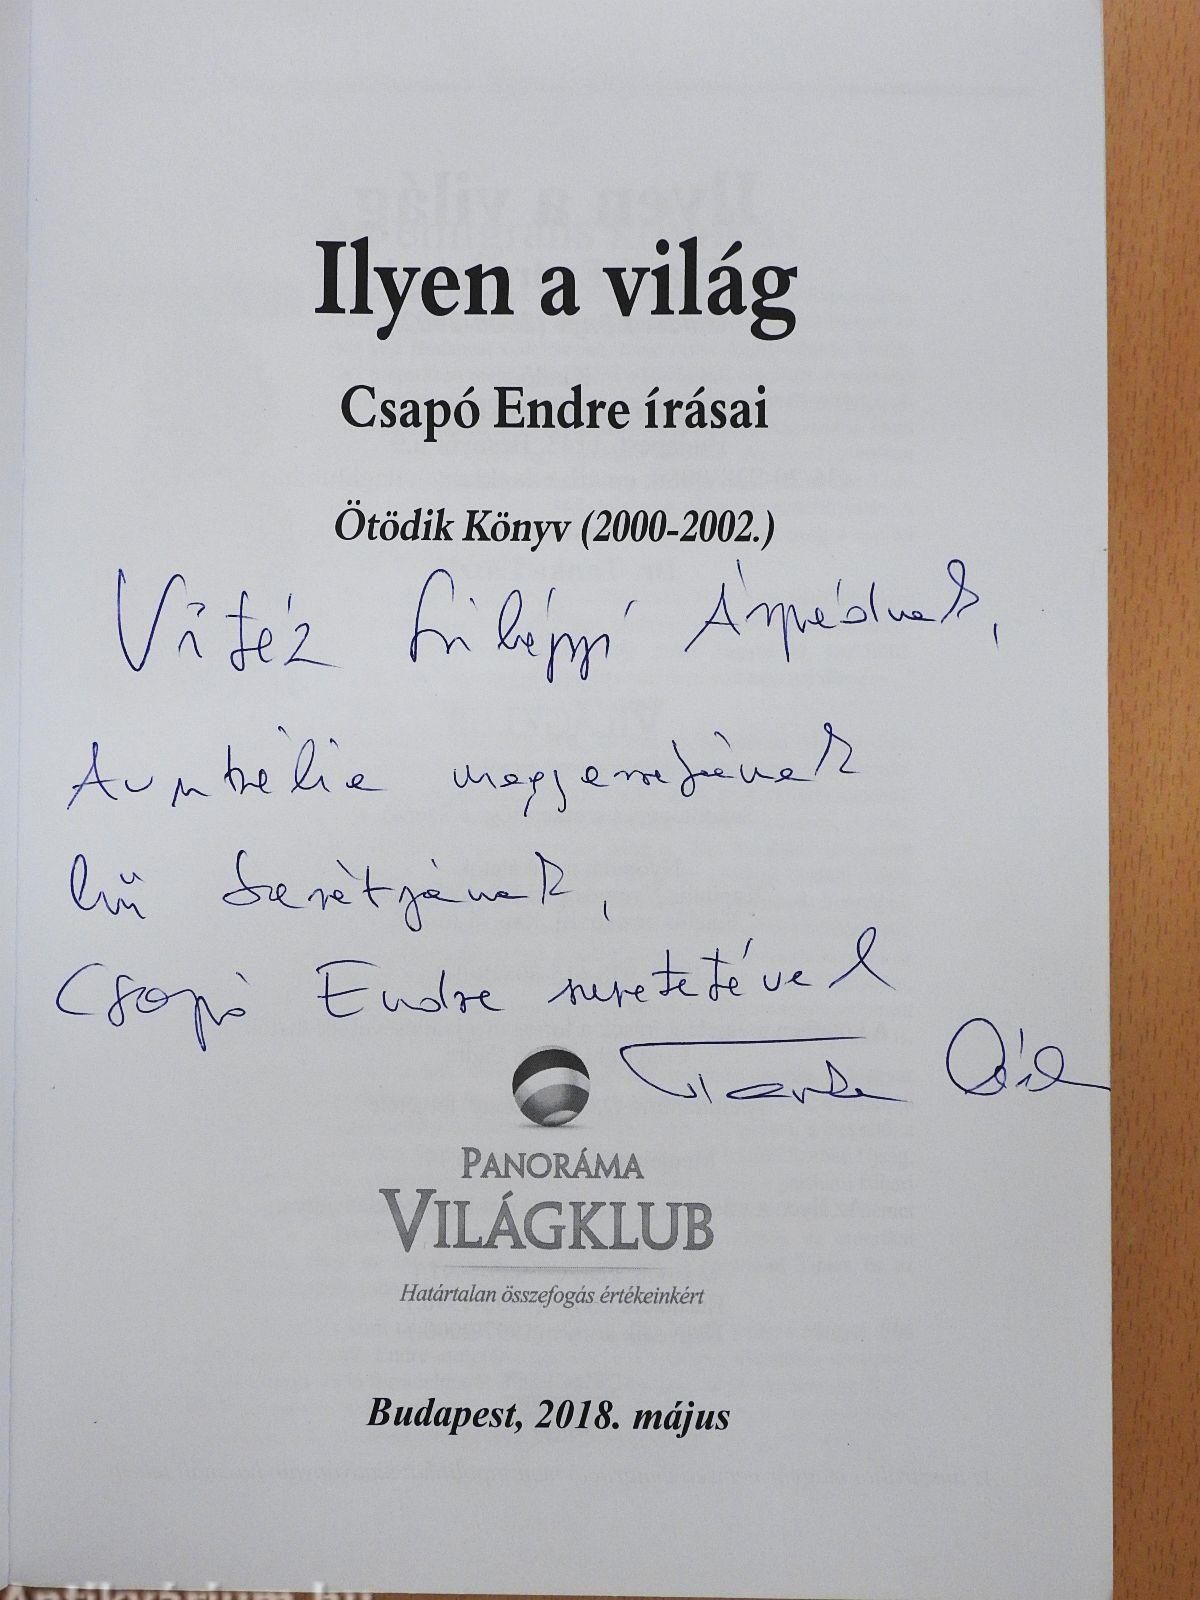 Ilyen a világ
Csapó Endre írásai
Ötödik Könyv (2000-2002.)
Vitéz Árpádnak,
Ausztrália magyarságának
hű barátjának,
Csapó Endre szeretetével
PANORÁMA
VILÁGKLUB
Határtalan összefogás értékeinkért
Budapest, 2018. május
Antikvárium.hu